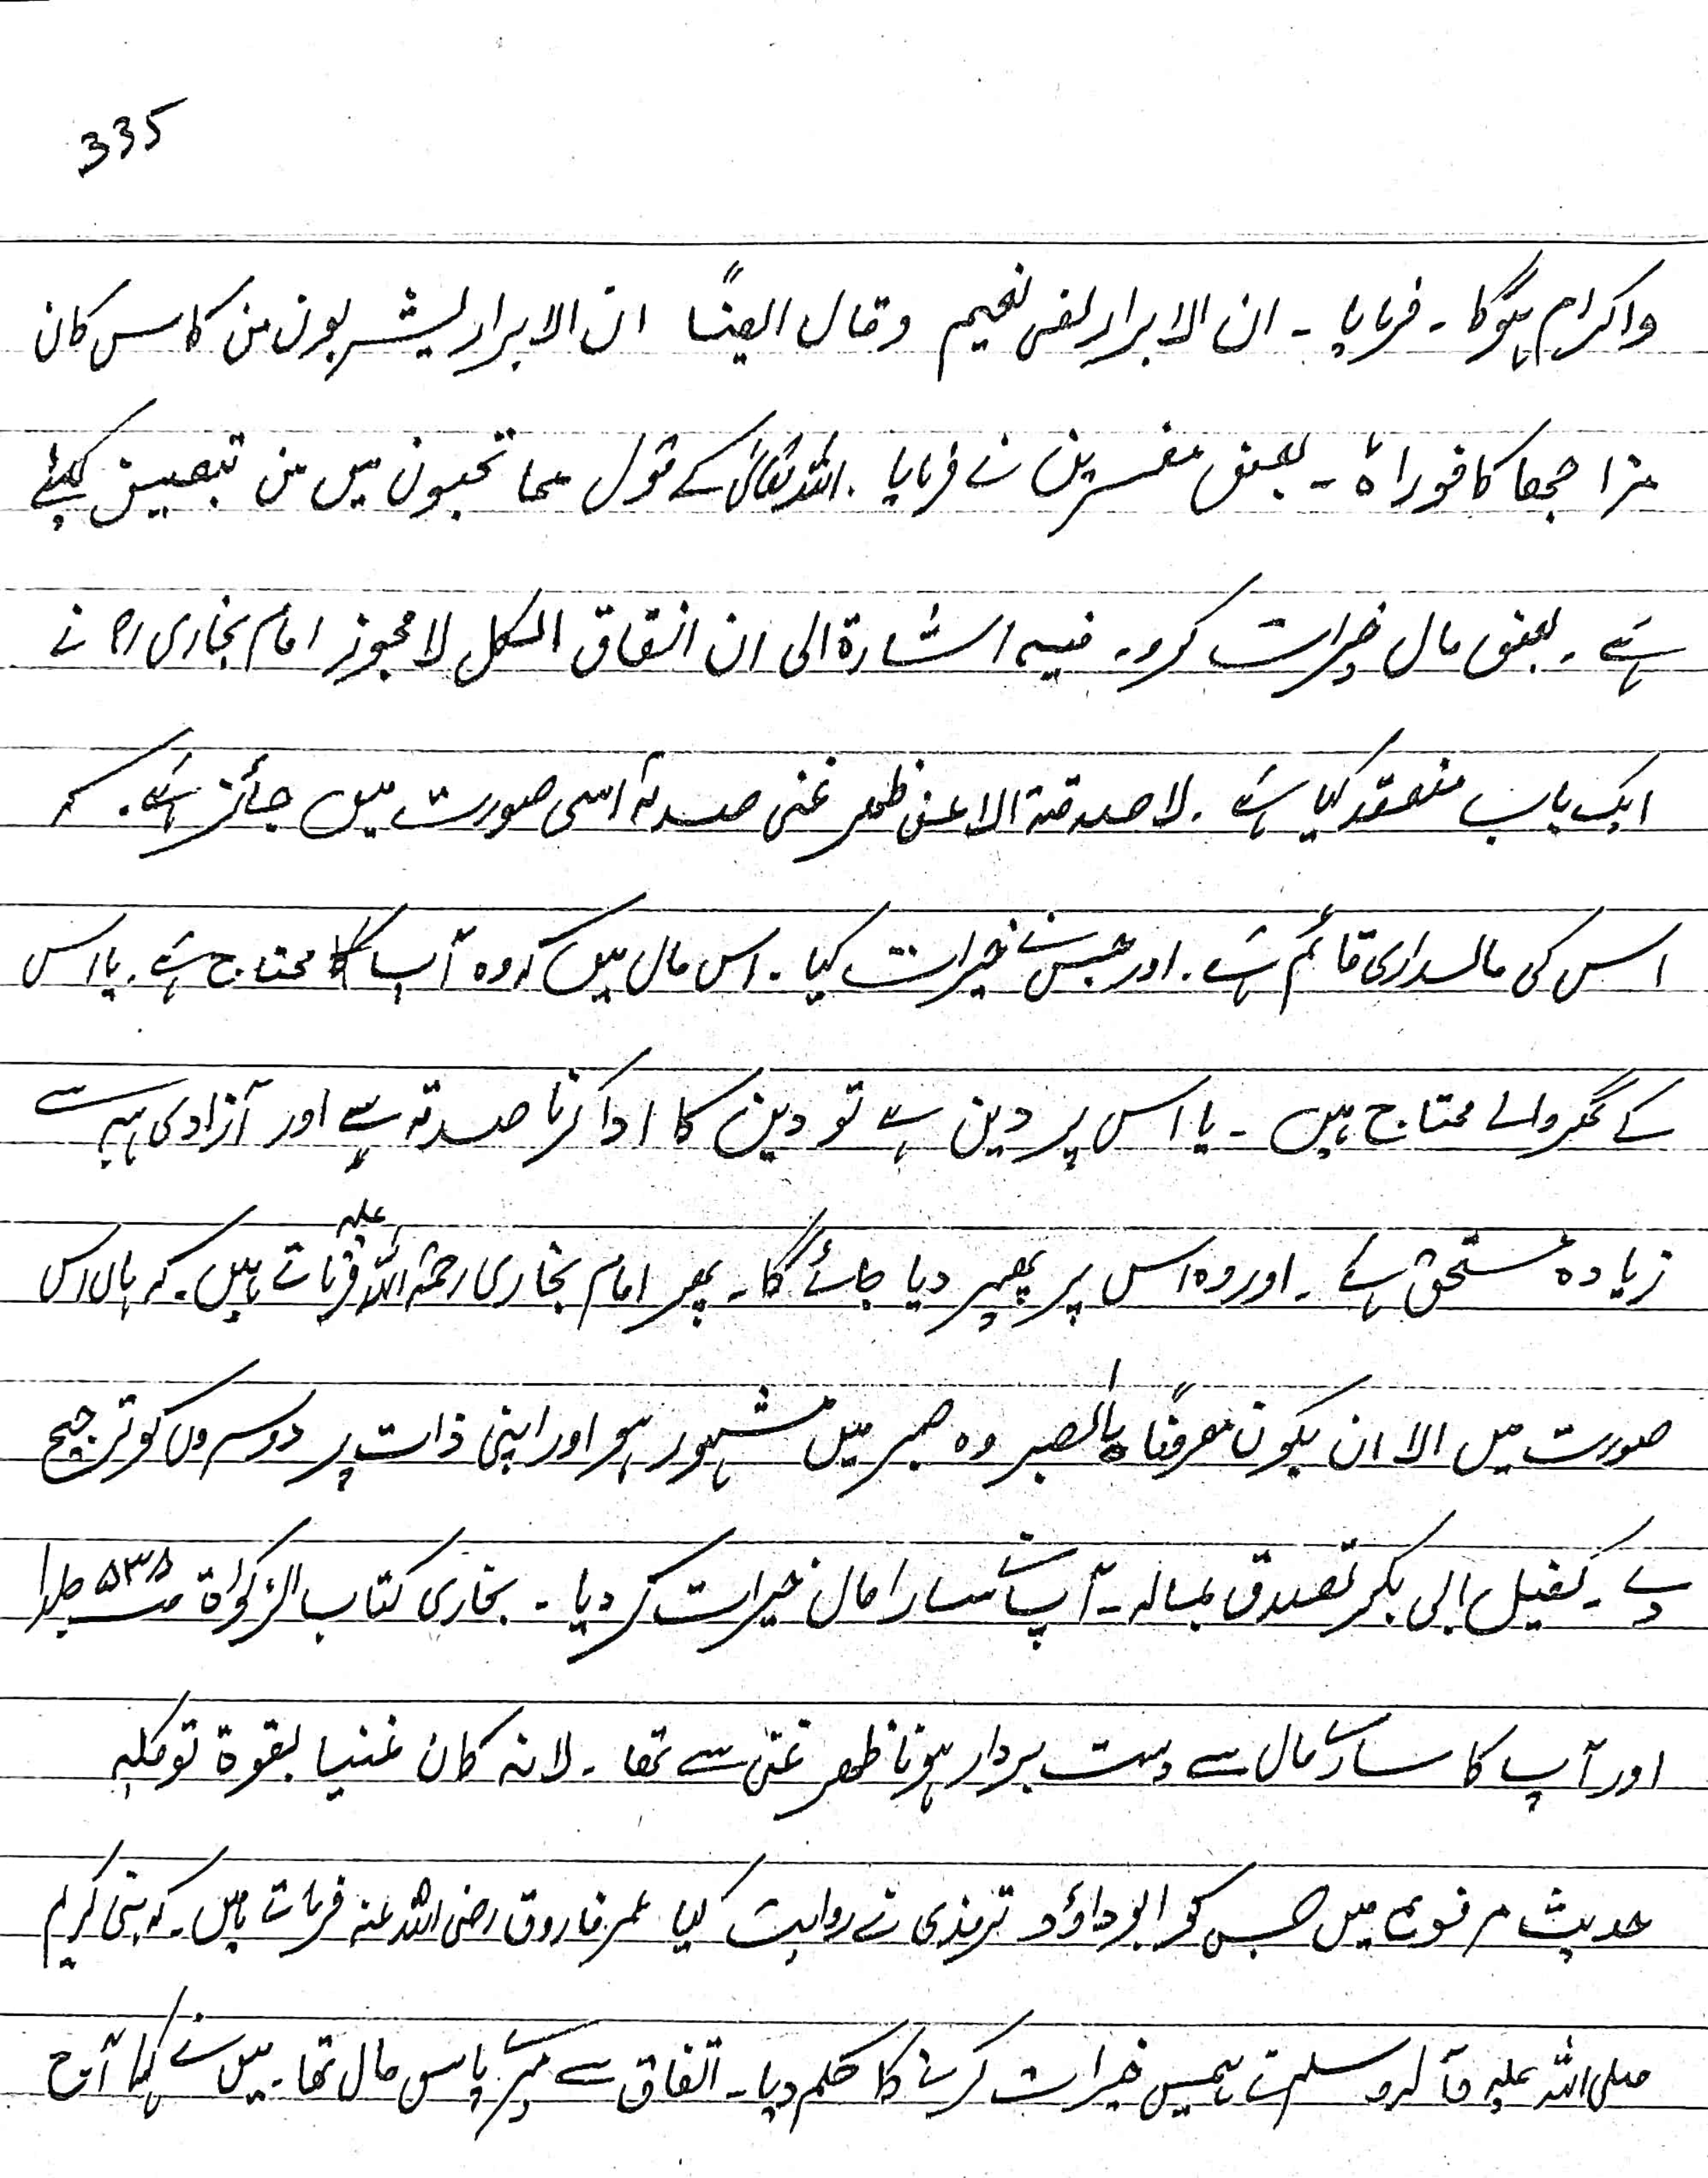 335
واکرام ہوگا۔ فرمایا۔ ان الابرار لفی نعیم وقال ایضًا ان الابرار یشربون من کاس کان
مزاجھا کافورا ہ۔ بعض مفسرین نے فرمایا۔ اللہ تعالیٰ کے قول مما تحبون میں من تبعیض کیلئے
ہے۔ بعض مال خیرات کرو۔ فیہ اشارۃ الی ان انفاق الکل لا یجوز امام بخاری رح نے
ایک باب منعقد کیا ہے۔ لا صدقۃ الا عن ظھر غنی صدقہ اسی صورت میں جائز ہے۔ کہ
اس کی مالداری قائم ہے۔ اور جس نے خیرات کیا۔ اس مال میں کہ وہ آپ کا محتاج ہے۔ یا اس
کے گھر والے محتاج ہیں۔ یا اس پر دین ہے تو دین کا ادا کرنا صدقہ سے اور آزادی ہبہ سے
زیادہ مستحق ہے۔ اور وہ اس پر پھیر دیا جائے گا۔ پھر امام بخاری رحمۃ اللہ علیہ فرماتے ہیں۔ کہ ہاں اس
صورت میں الا ان یکون معروفًا بالصبر وہ صبر میں مشہور ہو اور اپنی ذات پر دوسروں کو ترجیح
دے۔ کفیل ابی بکر تصدق بمالہ۔ آپ نے سارا مال خیرات کر دیا۔ بخاری کتاب الزکواۃ صـ ۵۳۸ جلد ۱
اور آپ کا سارے مال سے دست بردار ہونا ظھر غنی سے تھا۔ لانہ کان غنیا بقوۃ توکلہ
حدیث مرفوع میں جس کو ابوداؤد ترمذی نے روایت کیا عمر فاروق رضی اللہ عنہ فرماتے ہیں۔ کہ نبی کریم
صلی اللہ علیہ وآلہ وسلم نے ہمیں خیرات کرنے کا حکم دیا۔ اتفاق سے میرے پاس مال تھا۔ میں نے کہا آج